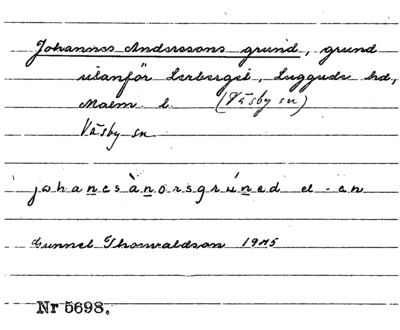 Johannes Anderssons grund, grund
utanför Lerberget, Luggude hd,
Malm. l. (Väsby sn)
Väsby sn
johanesànorsgrúned el -en
Gunnel Thorvaldson 1945
Nr 5698.